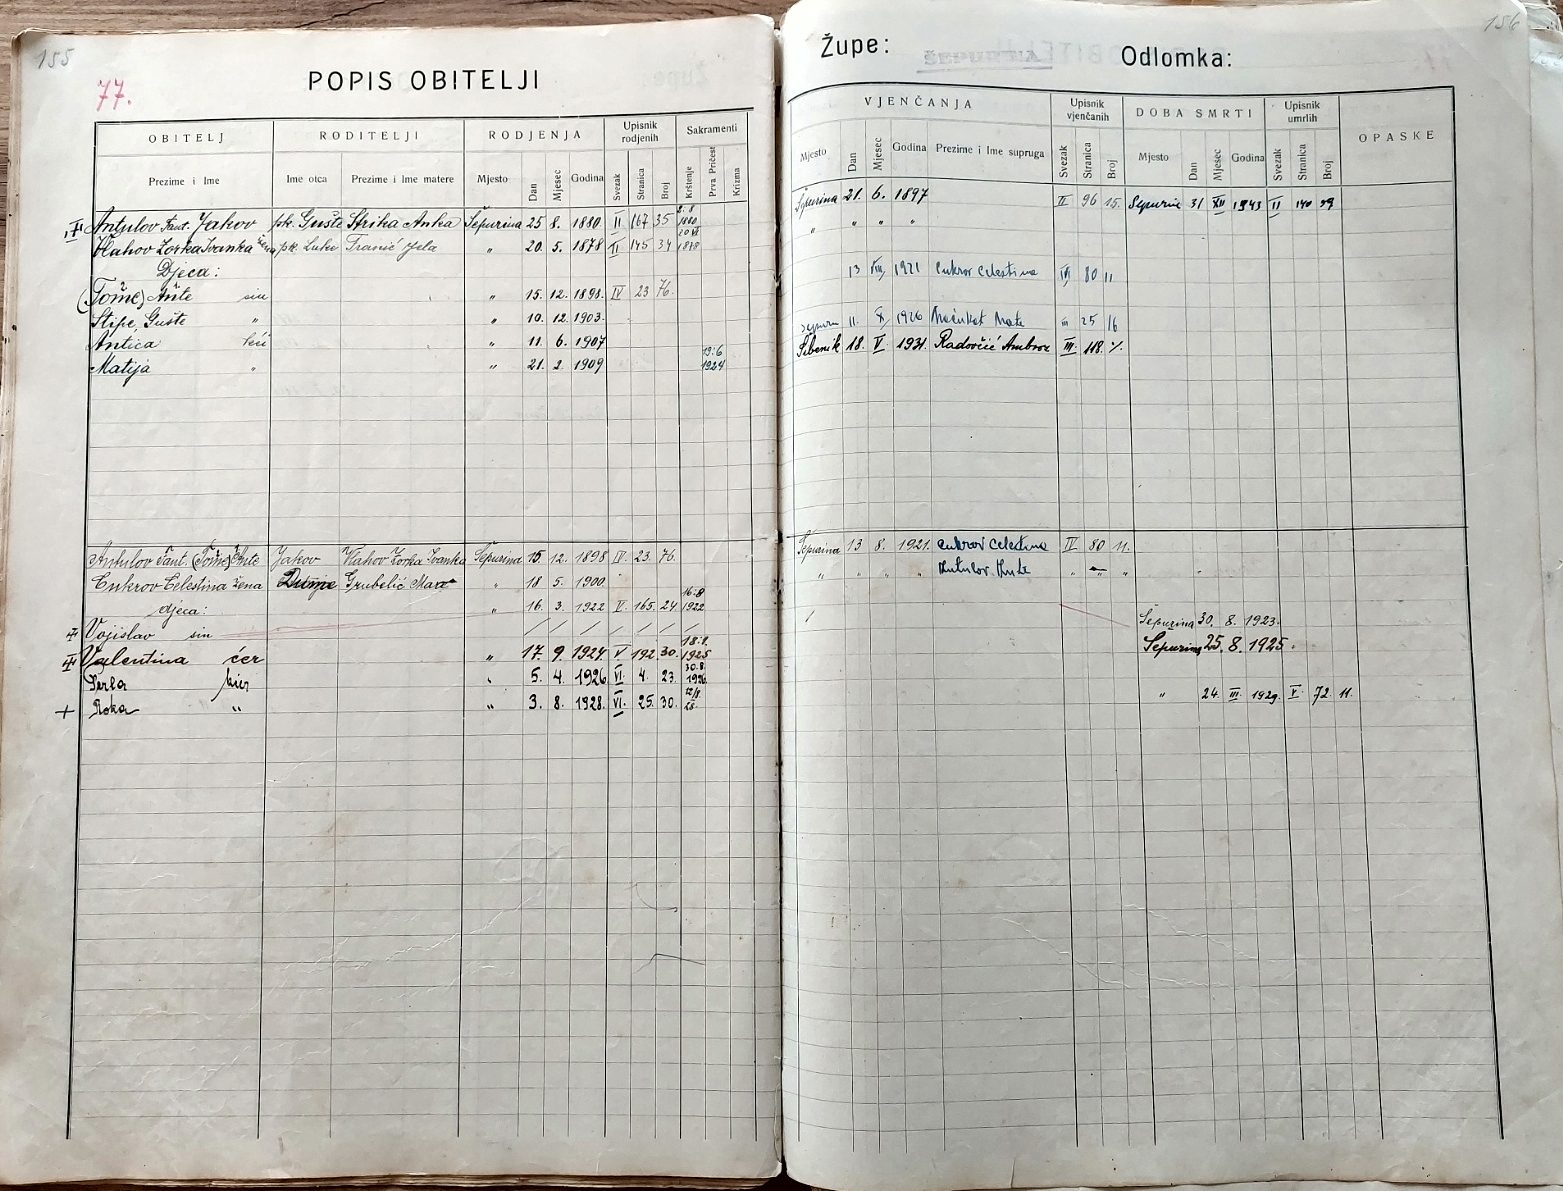 155
77.
POPIS OBITELJI
OBITELJ RODITELJI RODJENJA Upisnik rodjenih Sakramenti
Prezime i Ime Ime otca Prezime i Ime matere Mjesto Dan Mjesec Godina Svezak Stranica Broj Krštenje Prva Pričest Krizma
Antulov Fant. Jakov pk. Gušte Strika Anka Šepurina 25 8. 1880 II 167 35 2. 8 1880
Vlahov Zorka Ivanka žena pk. Luke Franić Jela " 20. 5. 1878 II 145 34 1878
Djeca:
(Tome) Ante sin " 15. 12. 1898. IV 23 76.
Stipe, Gušte " " 10. 12. 1903.
Antica kći " 11. 6. 1907
Matija " " 21. 2. 1909 19. 6 1924
Antulov Fant. (Tome) Ante Jakov Vlahov Zorka Ivanka Šepurina 15. 12. 1898 IV. 23. 76.
Cukrov Celestina žena Dunja Grubelić Mara " 18 5. 1900.
djeca: " 16. 3. 1922 V. 165. 24 16. 8 1922
Vojislav sin / / / / / /
Valentina ćer " 17. 9. 1924. V 192. 30. 18. 8. 1925
Perla kćer " 5. 4. 1926 VI. 4. 23. 30. 8. 1926
+ Roka " " 3. 8. 1928. VI. 25. 30. 12/8 28.
156
Župe: ŠEPURINA Odlomka:
VJENČANJA Upisnik vjenčanih DOBA SMRTI Upisnik umrlih OPASKE
Mjesto Dan Mjesec Godina Prezime i Ime supruga Svezak Stranica Broj Mjesto Dan Mjesec Godina Svezak Stranica Broj
Šepurina 21. 6. 1897 II 96 15. Šepurine 31 XII 1943 II 140 39
" " " "
13 VIII 1921 Cukrov Celestina IV 80 11
Šepurin 11. X, 1926 Mate III 25 16
Šibenik 18. V 1931. Radovčić Ambroz III. 118. %.
Šepurina 13 8. 1921. Cukrov Celestina IV 80 11.
" " " " Antulov Ante " " "
/ Šepurina 30. 8. 1923.
Šepurina 25. 8. 1925.
" 24. III. 1929. V. 72. 11.